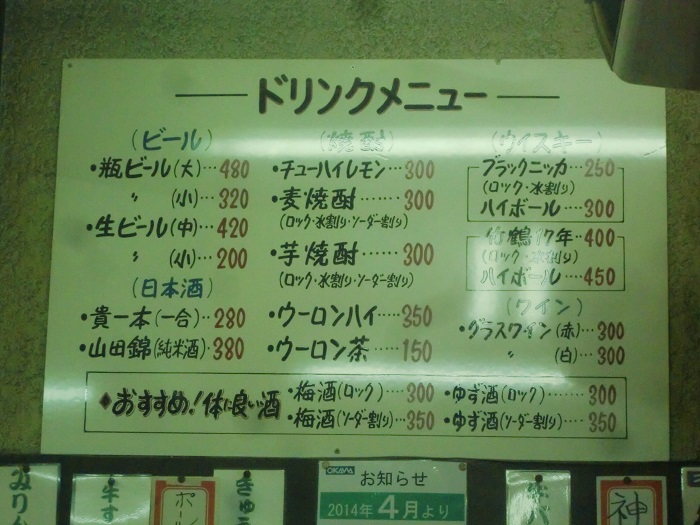 ドリンクメニュー
(ビール)
・瓶ビール(大)…480
〃 (小)…320
・生ビール(中)…420
〃 (小)…200
(日本酒)
・貴一本(一合)…280
・山田錦(純米酒)・380
(焼酎)
・チューハイレモン…300
・麦焼酎……300
(ロック・水割り・ソーダー割り)
・芋焼酎……300
(ロック・水割り・ソーダー割り)
・ウーロンハイ…350
・ウーロン茶…150
(ウイスキー)
ブラックニッカ…250
(ロック・水割り)
ハイボール…300
竹鶴17年…400
(ロック・水割り)
ハイボール…450
(ワイン)
・グラスワイン(赤)…300
〃 (白)…300
♦おすすめ!体に良い酒
・梅酒(ロック)……300
・梅酒(ソーダー割り)…350
・ゆず酒(ロック)……300
・ゆず酒(ソーダー割り)…350
OKAYA
お知らせ
2014年4月より
みりか
牛す
きゅう
神